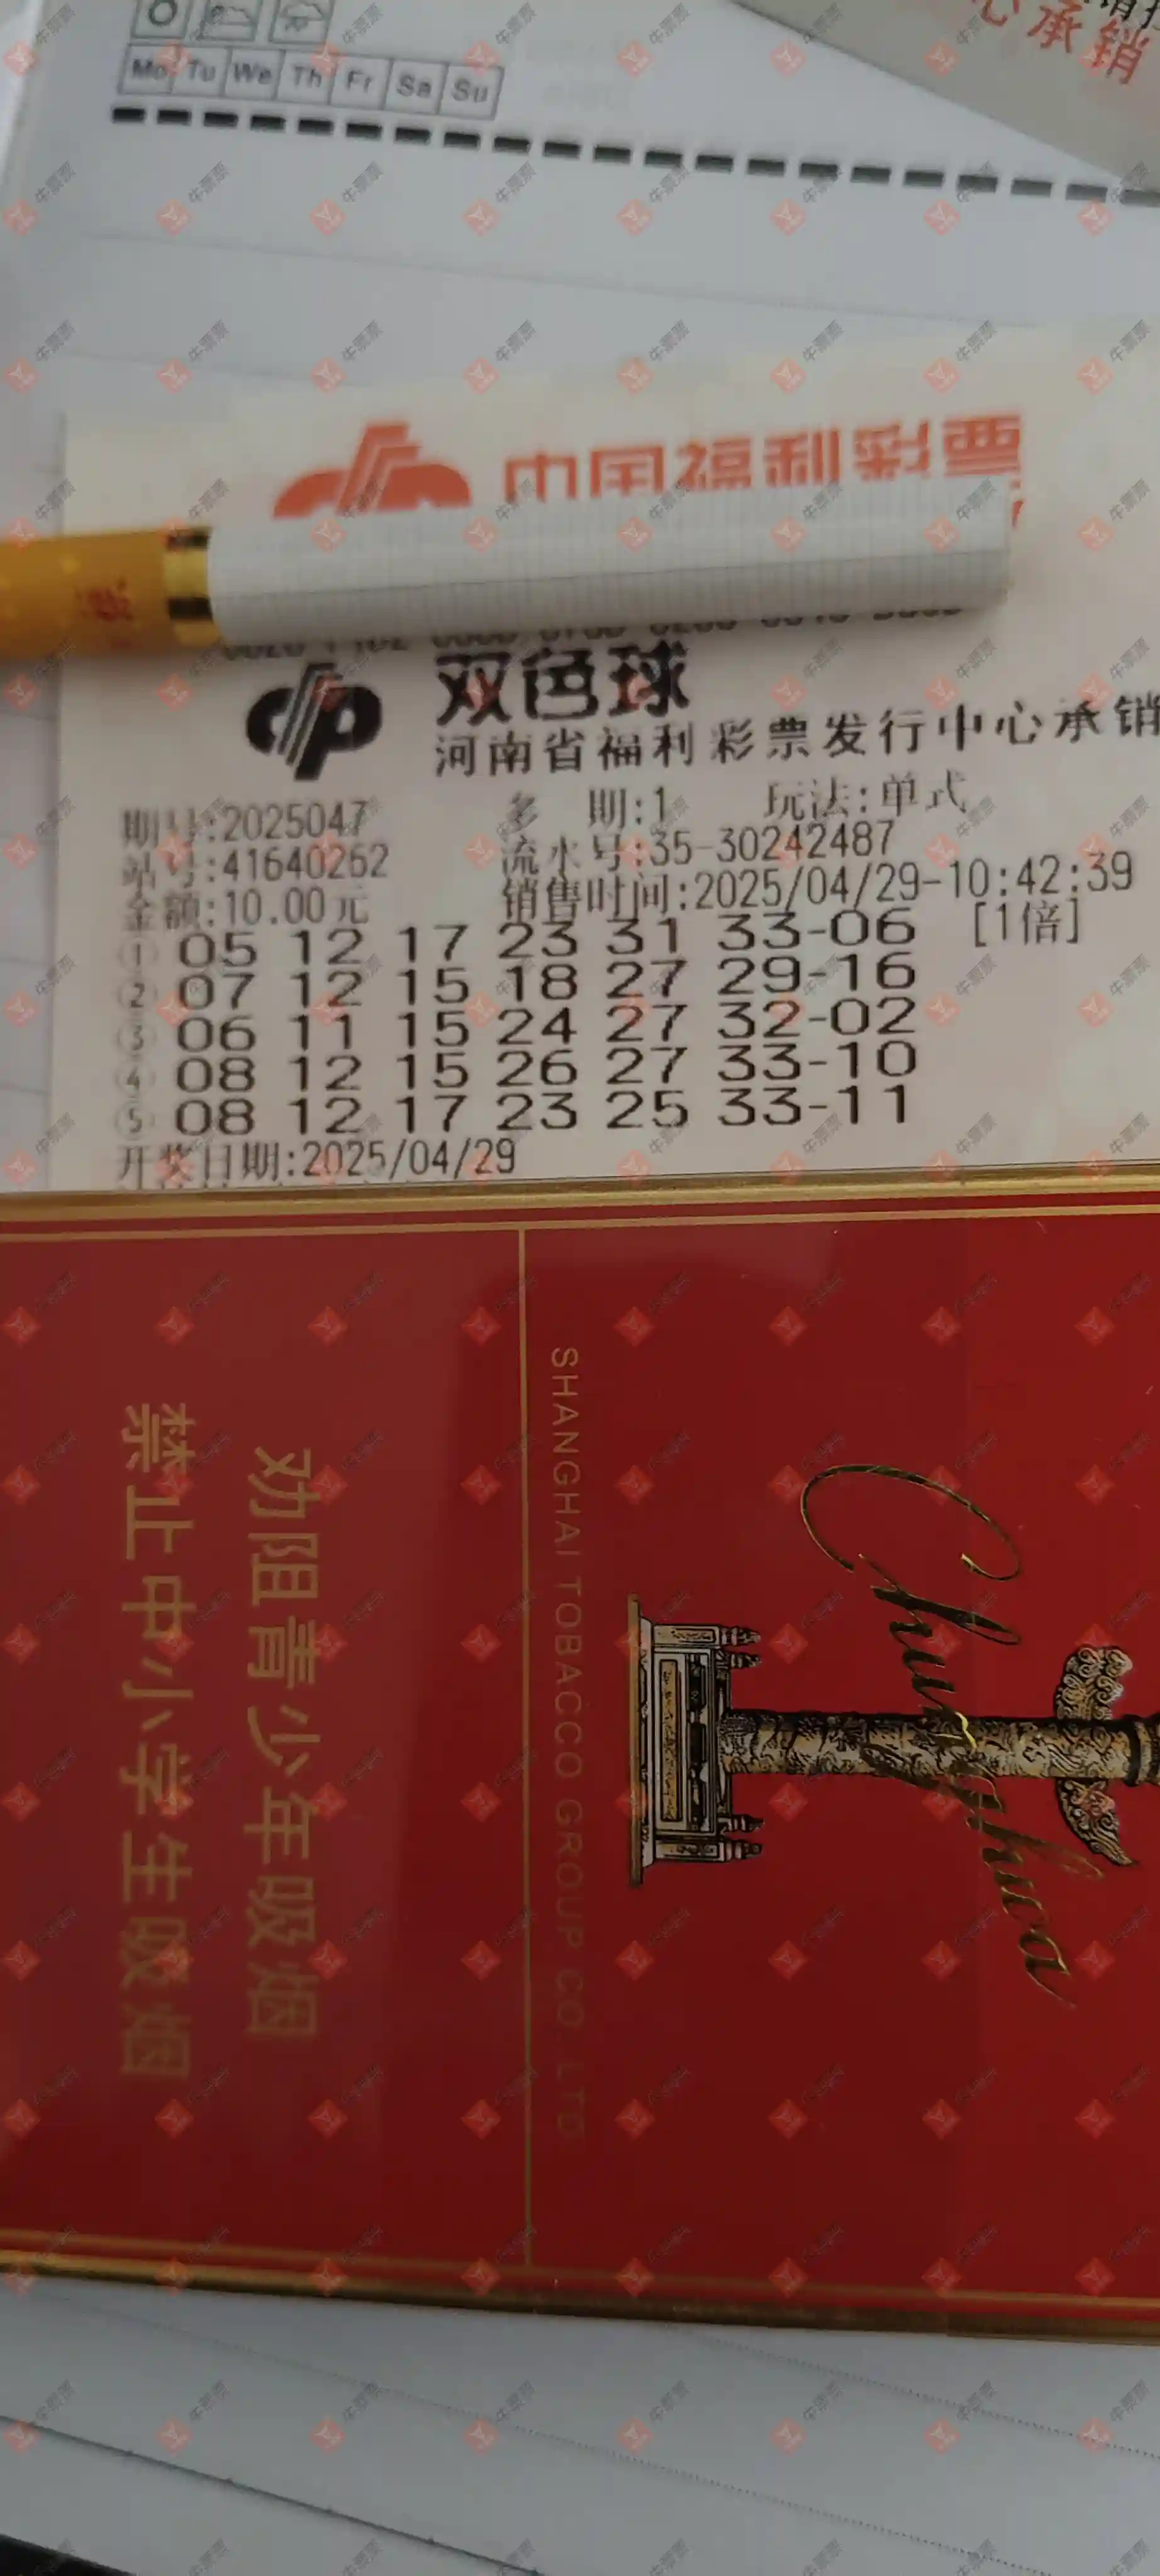 心承销
Mo Tu We Th Fr Sa Su
中国福利彩票
双色球
河南省福利彩票发行中心承销
期号:2025047 多 期:1 玩法:单式
站号:41640262 流水号:35-30242487
金额:10.00元 销售时间:2025/04/29-10:42:39
① 05 12 17 23 31 33-06 [1倍]
② 07 12 15 18 27 29-16
③ 06 11 15 24 27 32-02
④ 08 12 15 26 27 33-10
⑤ 08 12 17 23 25 33-11
开奖日期:2025/04/29
劝阻青少年吸烟
禁止中小学生吸烟
SHANGHAI TOBACCO GROUP CO. LTD.
Chunghwa
牛票票